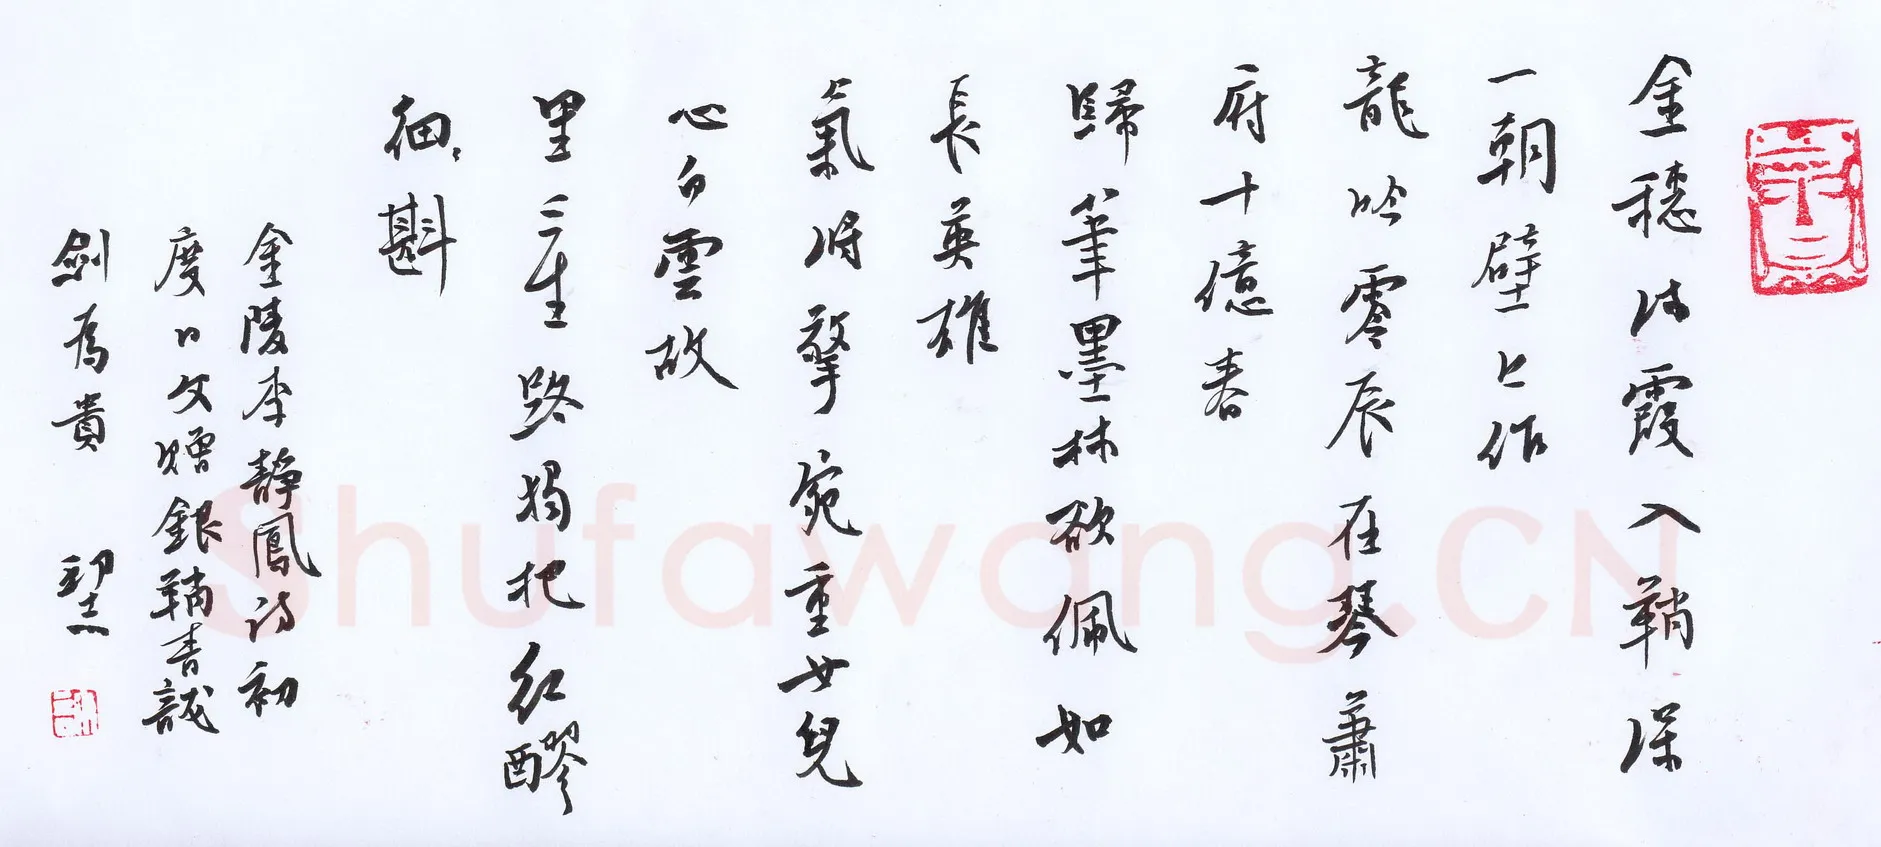 金穗流霞入鞘深
一朝壁上作
龍吟零辰在琴蕭
府十億春
歸筆墨林欲佩如
長英雄
氣時擎宛重女兒
心白雲故
里三生路揭把紅醪
細〻斟
金陵李靜鳳詩初
度日文贈銀鞘書誠
劍為貴
Shufawang.CN